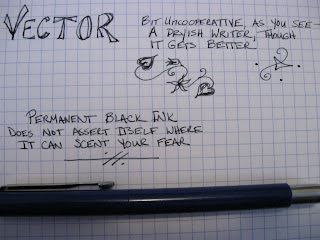 VECTOR
BIT UNCOOPERATIVE, AS YOU SEE —
A DRYISH WRITER, THOUGH
IT GETS BETTER.
PERMANENT BLACK INK
DOES NOT ASSERT ITSELF WHERE
IT CAN SCENT YOUR FEAR